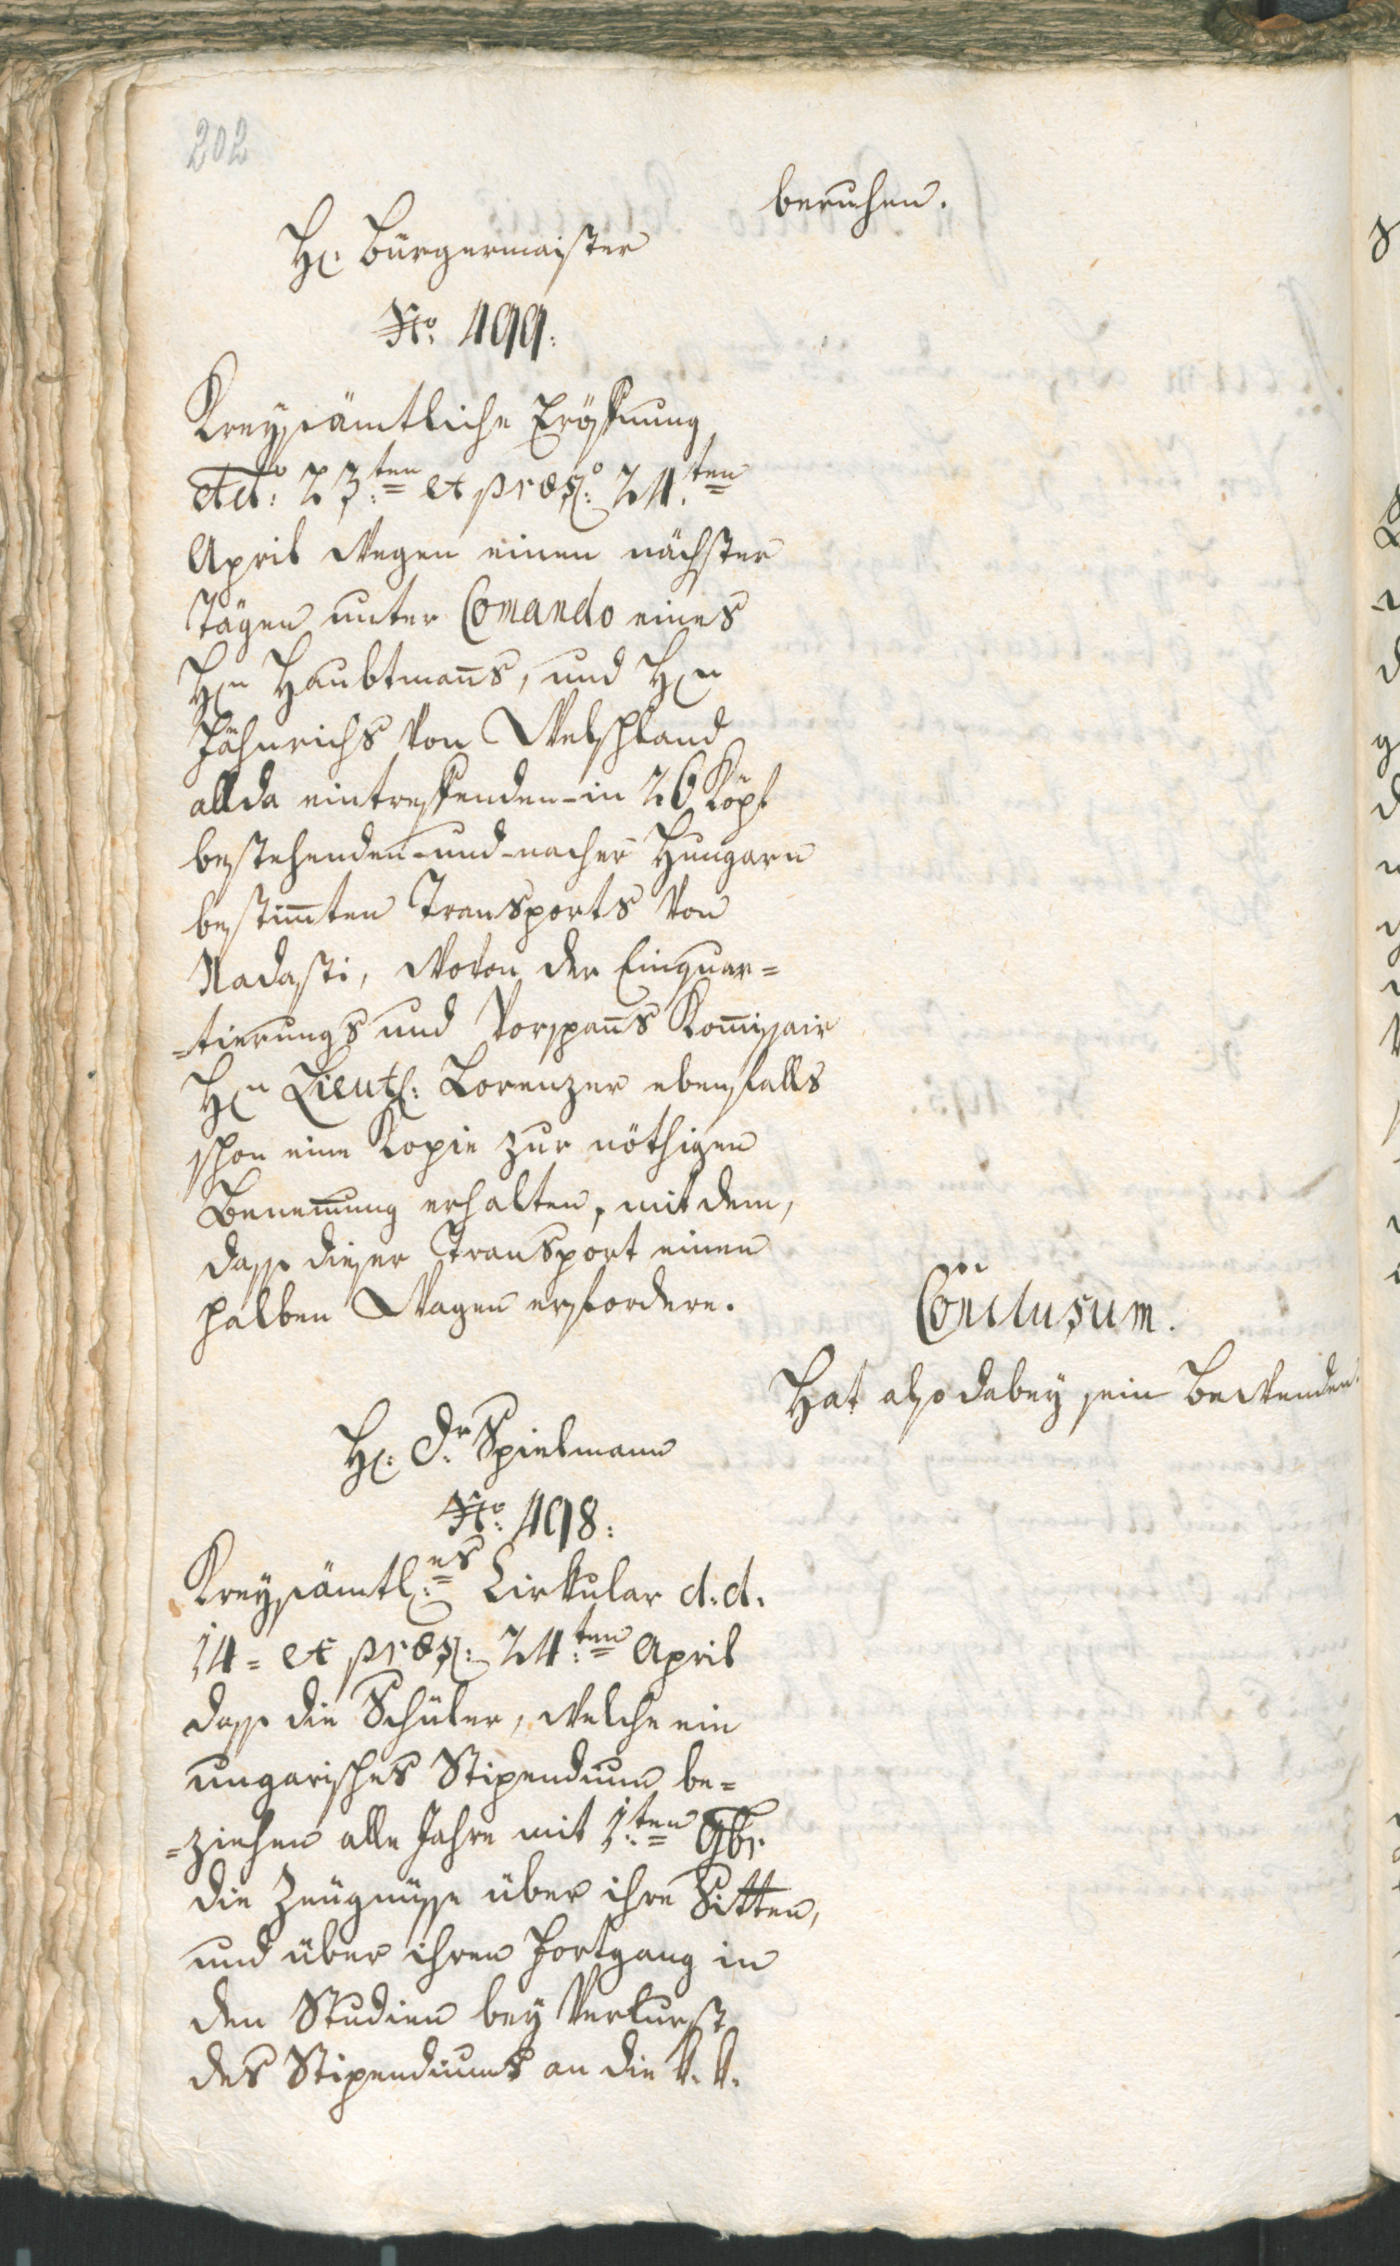 202
beruhen.
H: Bürgermaister
No: 499:
Kreysämtliche Eröffnung
de dto: 23:ten et præs: 24:ten
April Wegen einen nächster
Tägen unter Comando eines
H:n Haubtmans, und H:n
Fähnrichs von Welschland
allda eintreffenden-in 26 Köpf
bestehenden-und-nacher Hungarn
bestimten Transports von
Nadasti, Wovon der Einquar=
=tierungs und Vorspans Komissair
H:n Lieut: Lorenzer ebenfalls
schon eine Kopie zur nöthigen
Benemung erhalten, mit dem,
dass dieser Transport einen
halben Wagen erfordere.
Conclusum.
Hat also dabey sein Bewenden.
H: Dr: Spielmann
No: 498:
Kreysämtl:es Cirkular d. d.
14= et præs: 24:ten April
dass die Schüler, welche ein
ungarisches Stipendium be=
=ziehen alle Jahre mit 1:ten 9br
die Zeügnüsse über ihre Sitten,
und über ihren Fortgang in
den Studien bey Verlurst
des Stipendiums an die V. V.